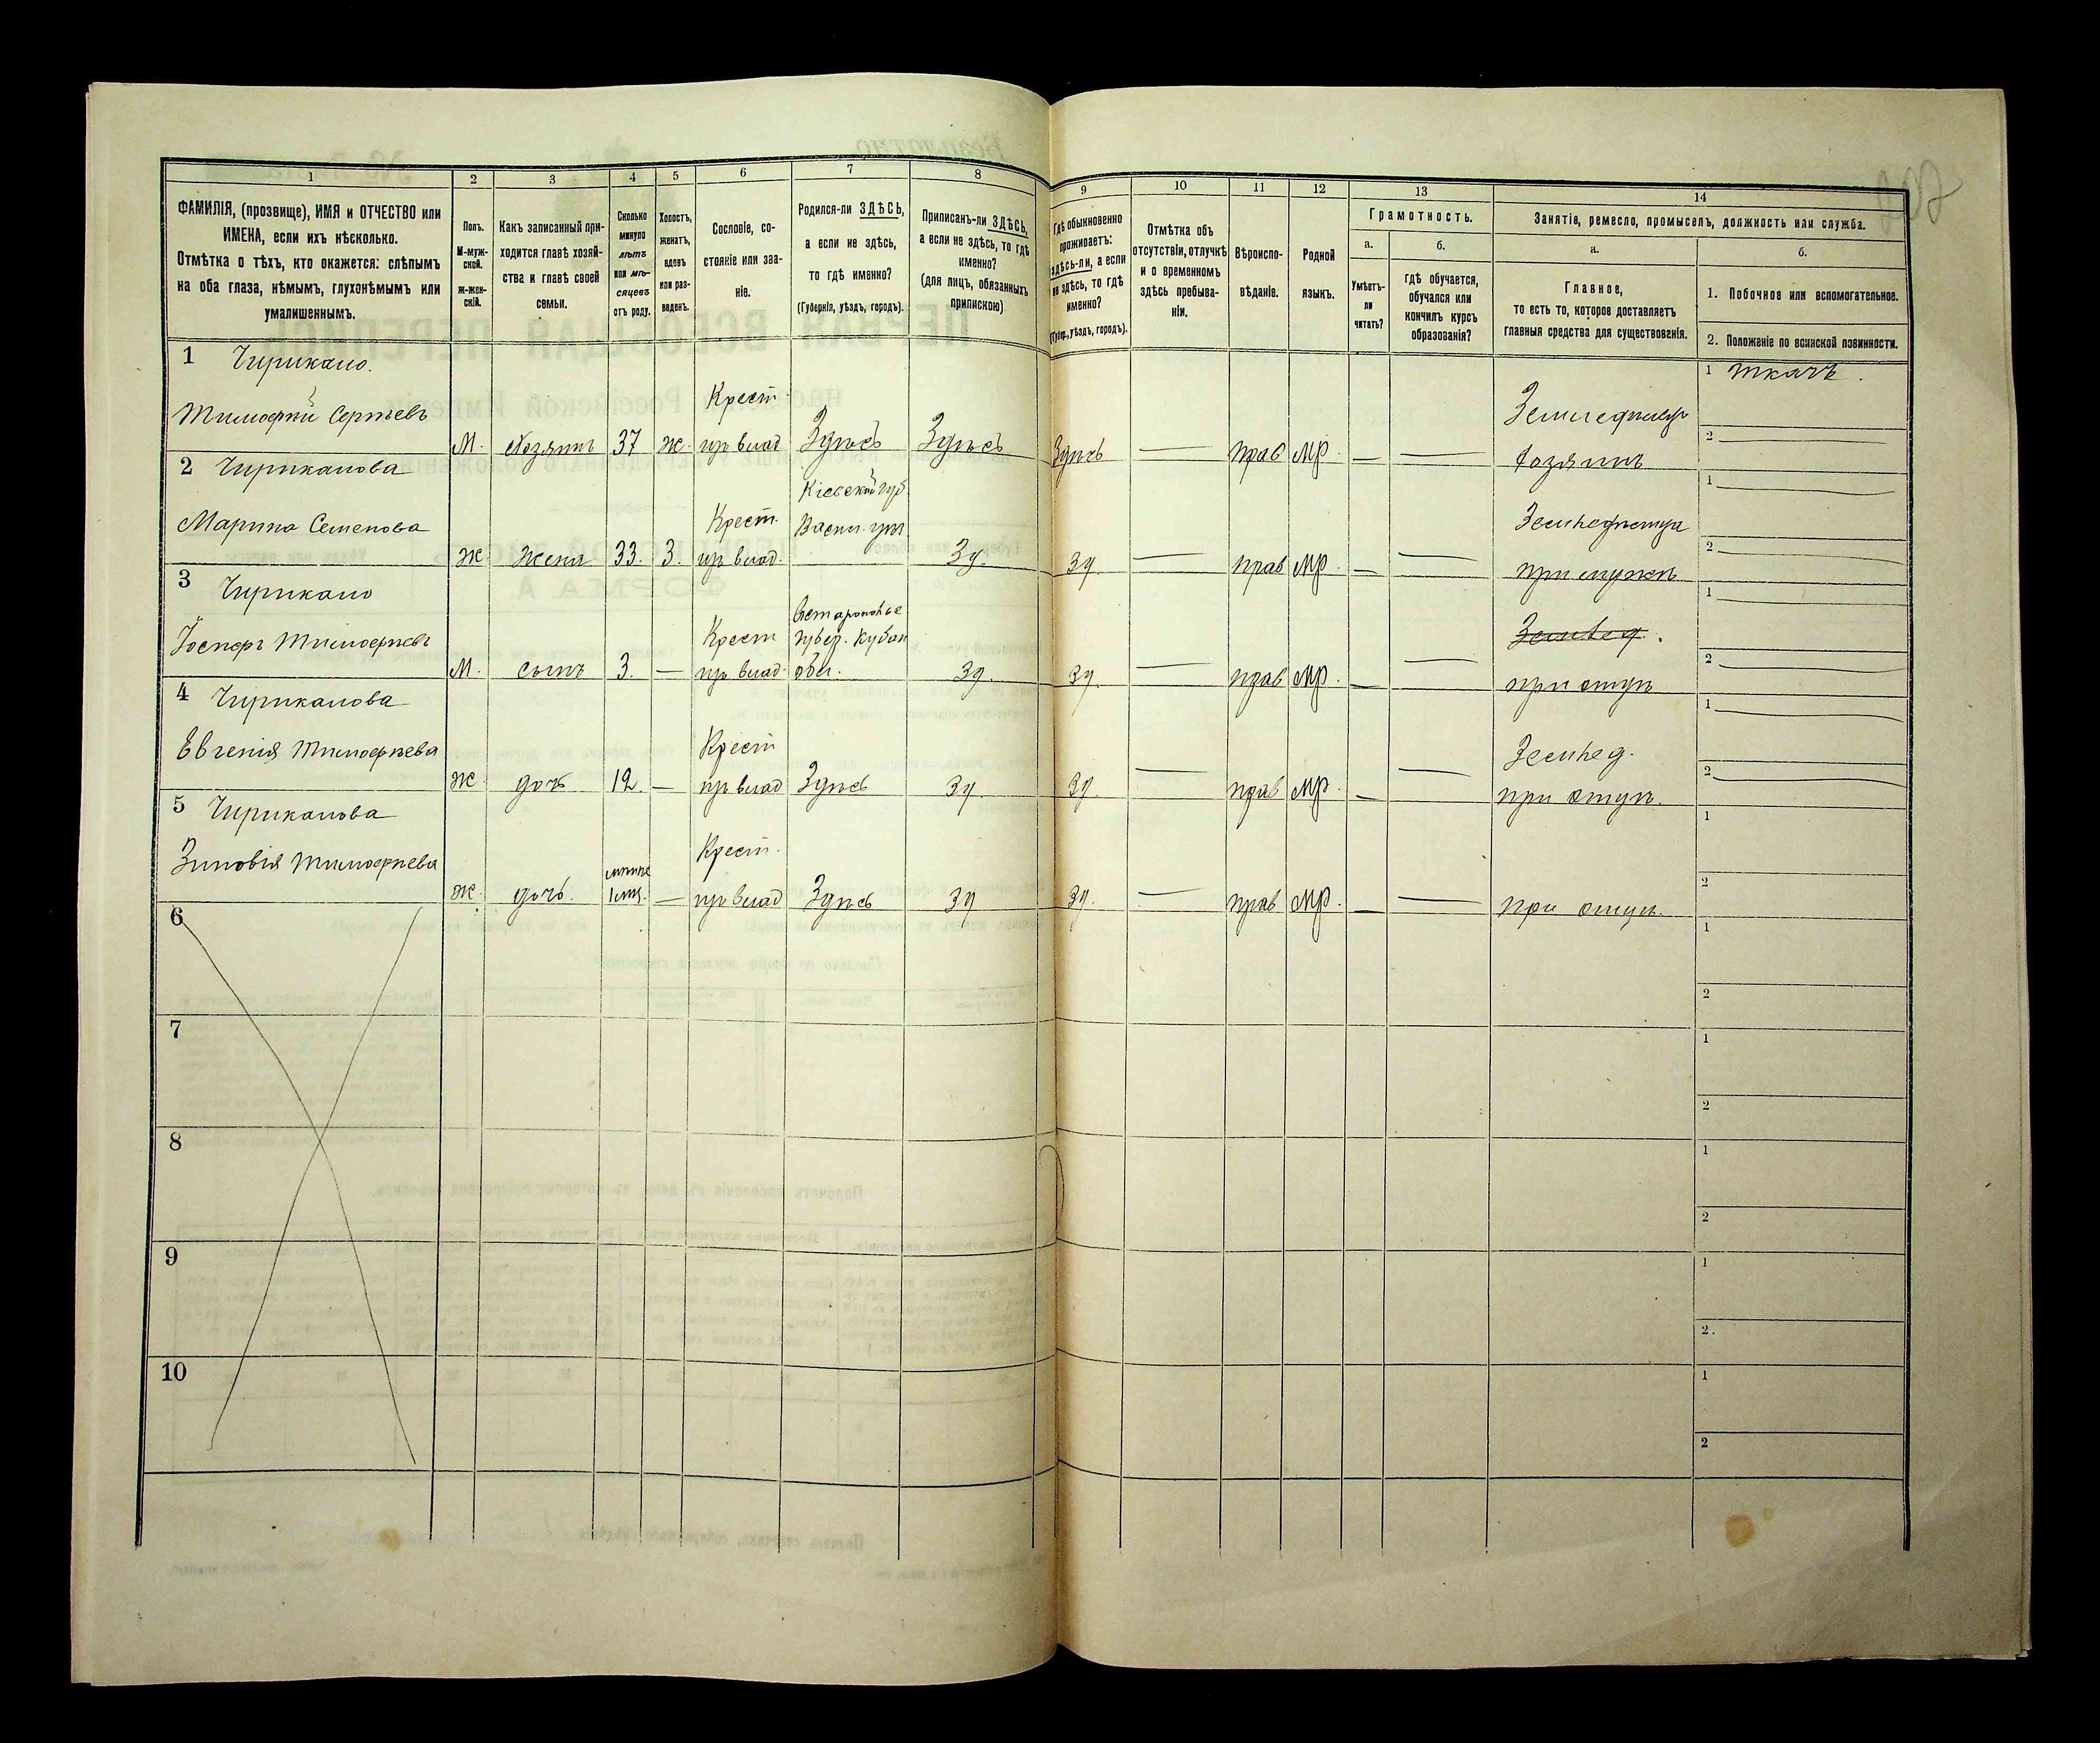 1 2 3 4 5 6 7 8 9 10 11 12 13 14
ФАМИЛІЯ, (прозвище), ИМЯ и ОТЧЕСТВО или
ИМЕНА, если ихъ нѣсколько.
Отмѣтка о тѣхъ, кто окажется: слѣпымъ
на оба глаза, нѣмымъ, глухонѣмымъ или
умалишеннымъ.
Полъ.
М-муж-
ской.
Ж-жен-
скій.
Какъ записанный при-
ходится главѣ хозяй-
ства и главѣ своей
семьи.
Сколько
минуло
лѣтъ
или мѣ-
сяцевъ
отъ роду.
Холостъ,
женатъ,
вдовъ
или раз-
веденъ.
Сословіе, со-
стояніе или зва-
ніе.
Родился-ли ЗДѢСЬ,
а если не здѣсь,
то гдѣ именно?
(Губернія, уѣздъ, городъ).
Приписанъ-ли ЗДѢСЬ,
а если не здѣсь, то гдѣ
именно?
(для лицъ, обязанныхъ
припискою)
Гдѣ обыкновенно
проживаетъ:
здѣсь-ли, а если
не здѣсь, то гдѣ
именно?
(Губер., уѣздъ, городъ).
Отмѣтка объ
отсутствіи, отлучкѣ
и о временномъ
здѣсь пребыва-
ніи.
Вѣроиспо-
вѣданіе.
Родной
языкъ.
Грамотность.
а.
Умѣетъ-
ли
читать?
б.
Гдѣ обучается,
обучался или
кончилъ курсъ
образованія?
Занятіе, ремесло, промыселъ, должность или служба.
а.
Главное,
то есть то, которое доставляетъ
главныя средства для существованія.
б.
1. Побочное или вспомогательное.
2. Положеніе по воинской повинности.
1 Чирикало.
Тимофѣй Сергѣевъ
М. Хозяинъ 37 Ж.
Крест
пр влад
Здѣсь Здѣсь Здѣсь — прав мр. — —
Хозяинъ
1 Ткачъ.
2 —
2 Чирикалова
Марина Семенова
Ж Жена 33. З.
Крест.
пр влад.
Кіевской губ
Васил. уѣз
Зд. зд. — прав мр. — —
при мужѣ
1 —
2 —
3 Чирикало
Тимофѣевъ
М. сынъ 3. —
Крест
пр влад.
губер. Кубан
обл.
зд. зд. — прав мр. — —
Землед.
при отцѣ
1 —
2 —
4 Чирикалова
Евгенія Тимофѣева
Ж. дочь 12 —
Крест
пр влад
Здѣсь зд зд. — прав мр. — —
Землед.
при отцѣ.
1 —
2 —
5 Чирикалова
Зиновія Тимофѣева
Ж. дочь. 1 мц. —
Крест.
пр влад
Здѣсь зд зд. — прав мр. — —
при отцѣ.
1
2
6
1
2
7
1
2
8
1
2
9
1
2.
10
1
2